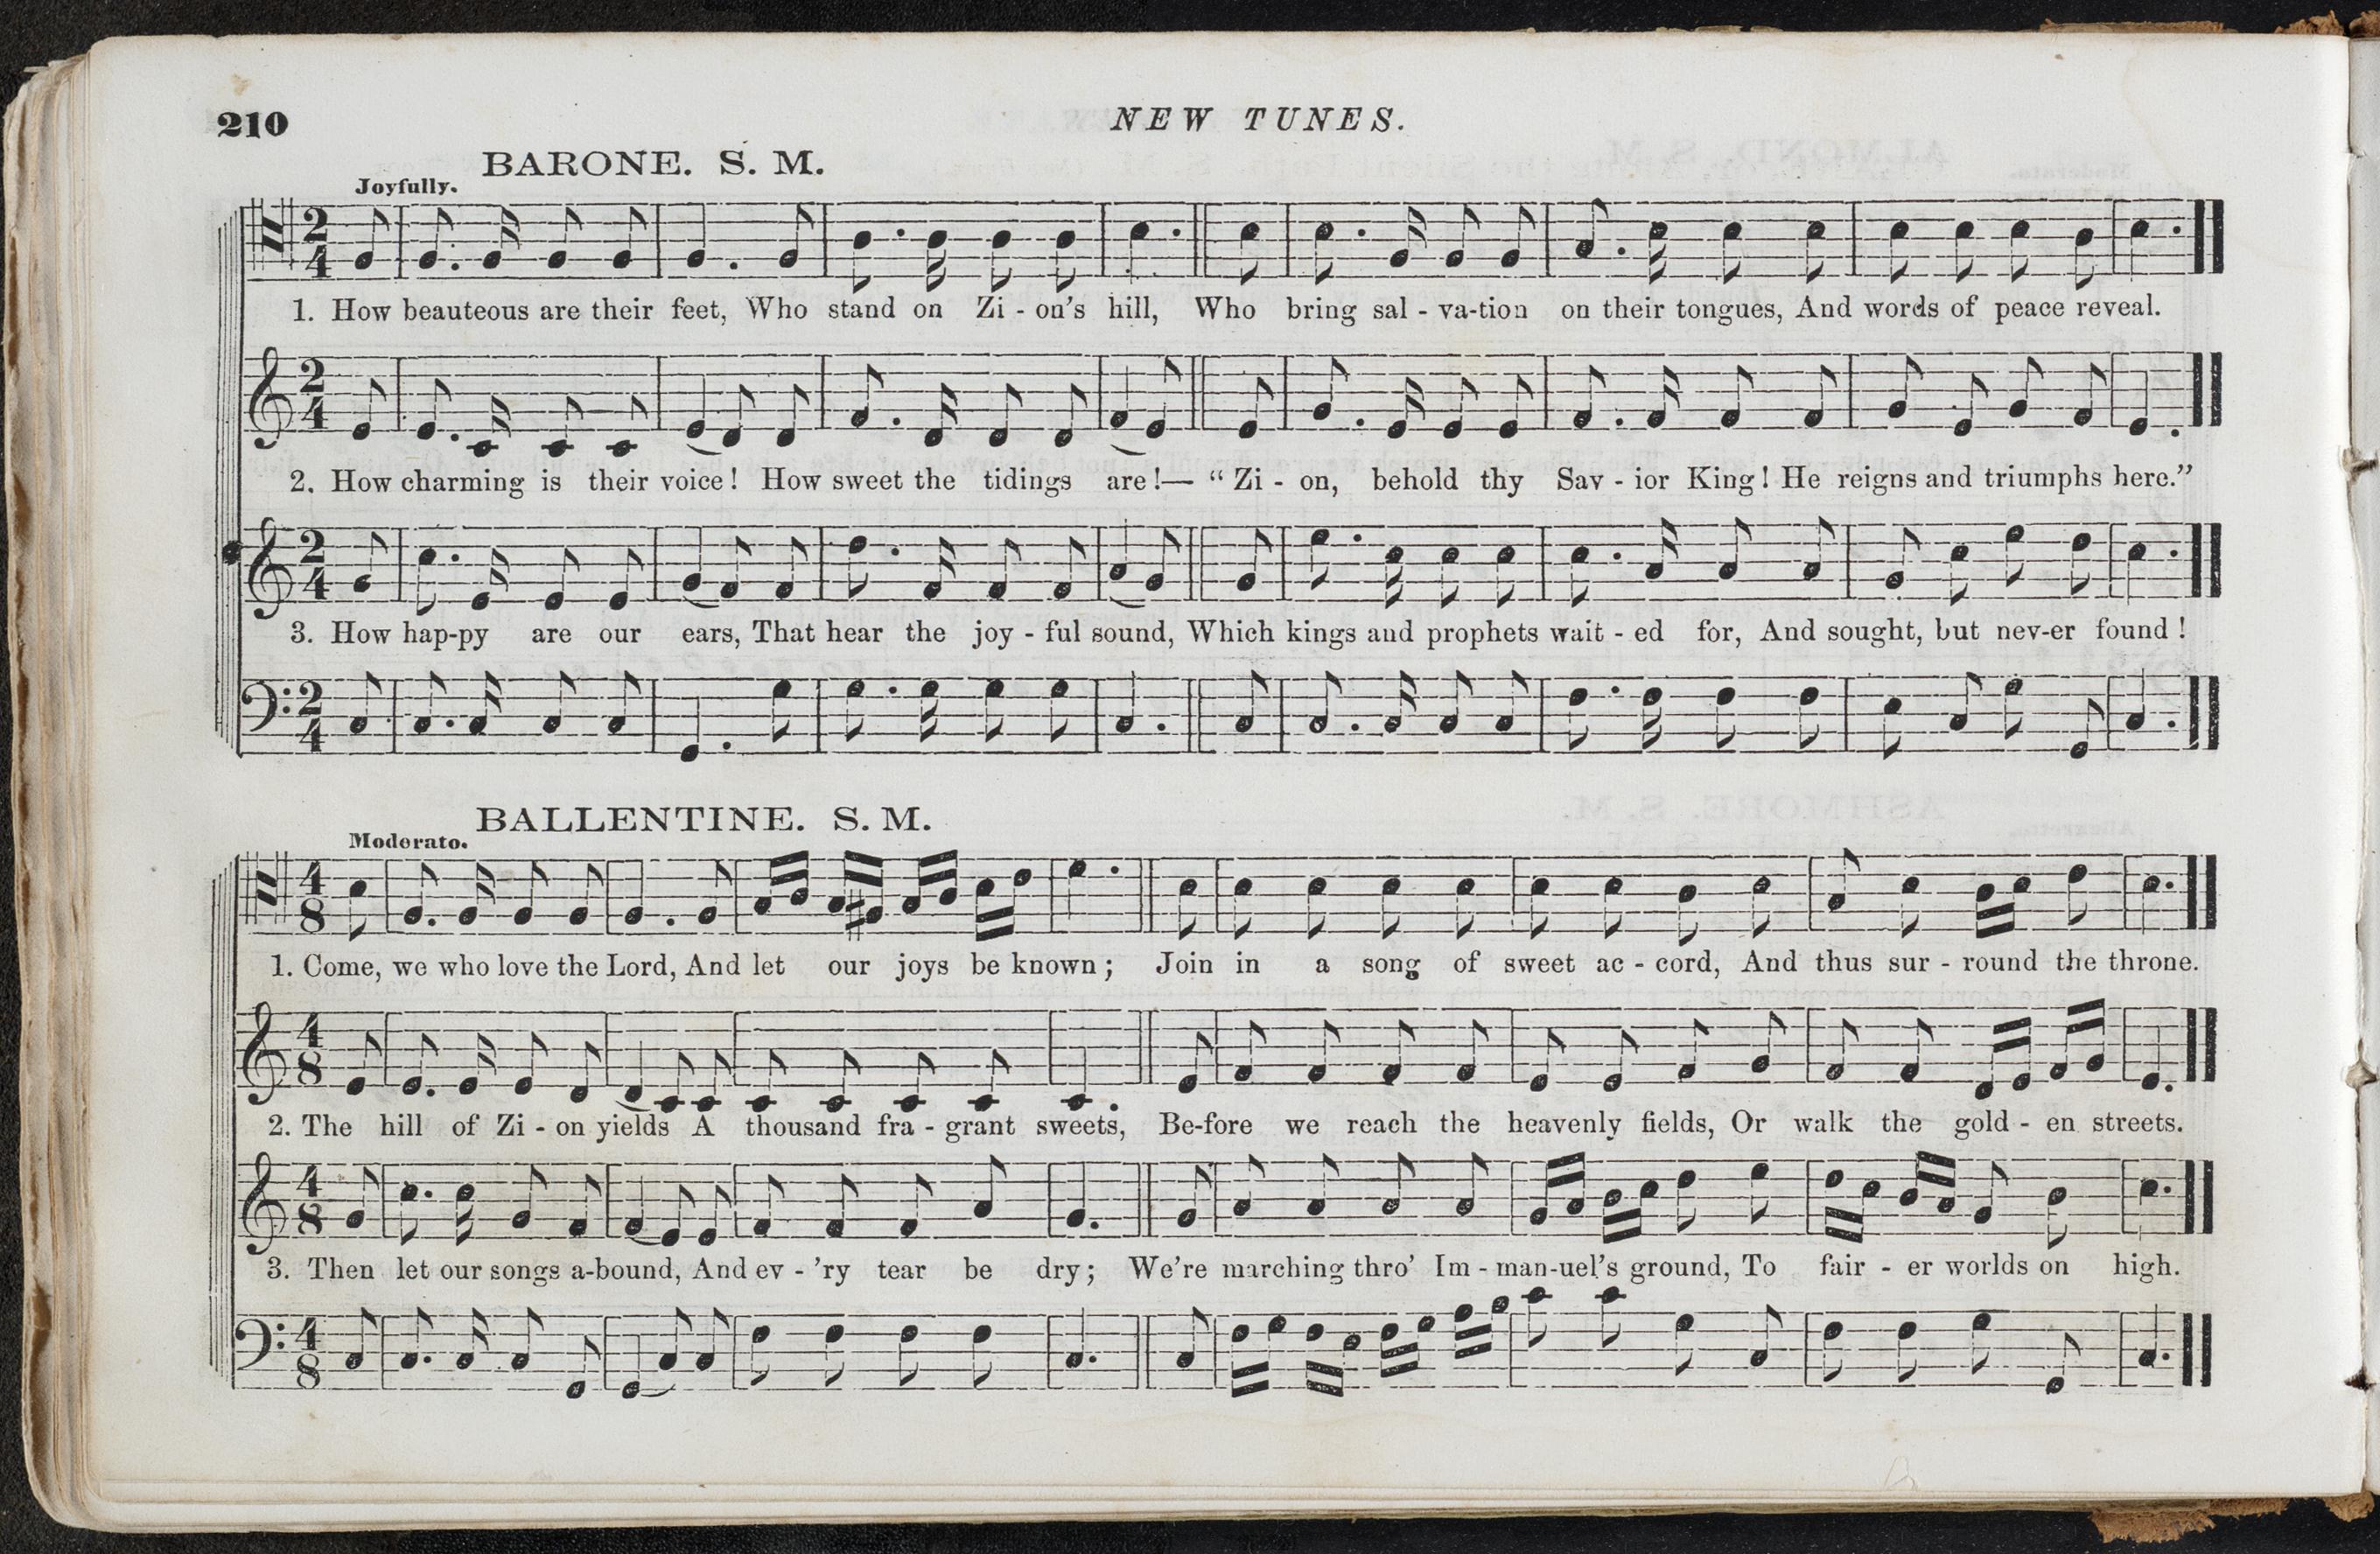 210
NEW TUNES.
BARONE. S. M.
Joyfully.
2 4
1. How beauteous are their feet, Who stand on Zi - on's hill, Who bring sal - va-tion on their tongues, And words of peace reveal.
2 4
2. How charming is their voice! How sweet the tidings are!— “Zi - on, behold thy Sav - ior King! He reigns and triumphs here.”
2 4
3. How hap-py are our ears, That hear the joy - ful sound, Which kings and prophets wait - ed for, And sought, but nev-er found!
2 4
BALLENTINE. S. M.
Moderato.
4 8
1. Come, we who love the Lord, And let our joys be known; Join in a song of sweet ac - cord, And thus sur - round the throne.
4 8
2. The hill of Zi - on yields A thousand fra - grant sweets, Be-fore we reach the heavenly fields, Or walk the gold - en streets.
4 8
3. Then let our songs a-bound, And ev - 'ry tear be dry; We're marching thro' Im - man-uel's ground, To fair - er worlds on high.
4 8